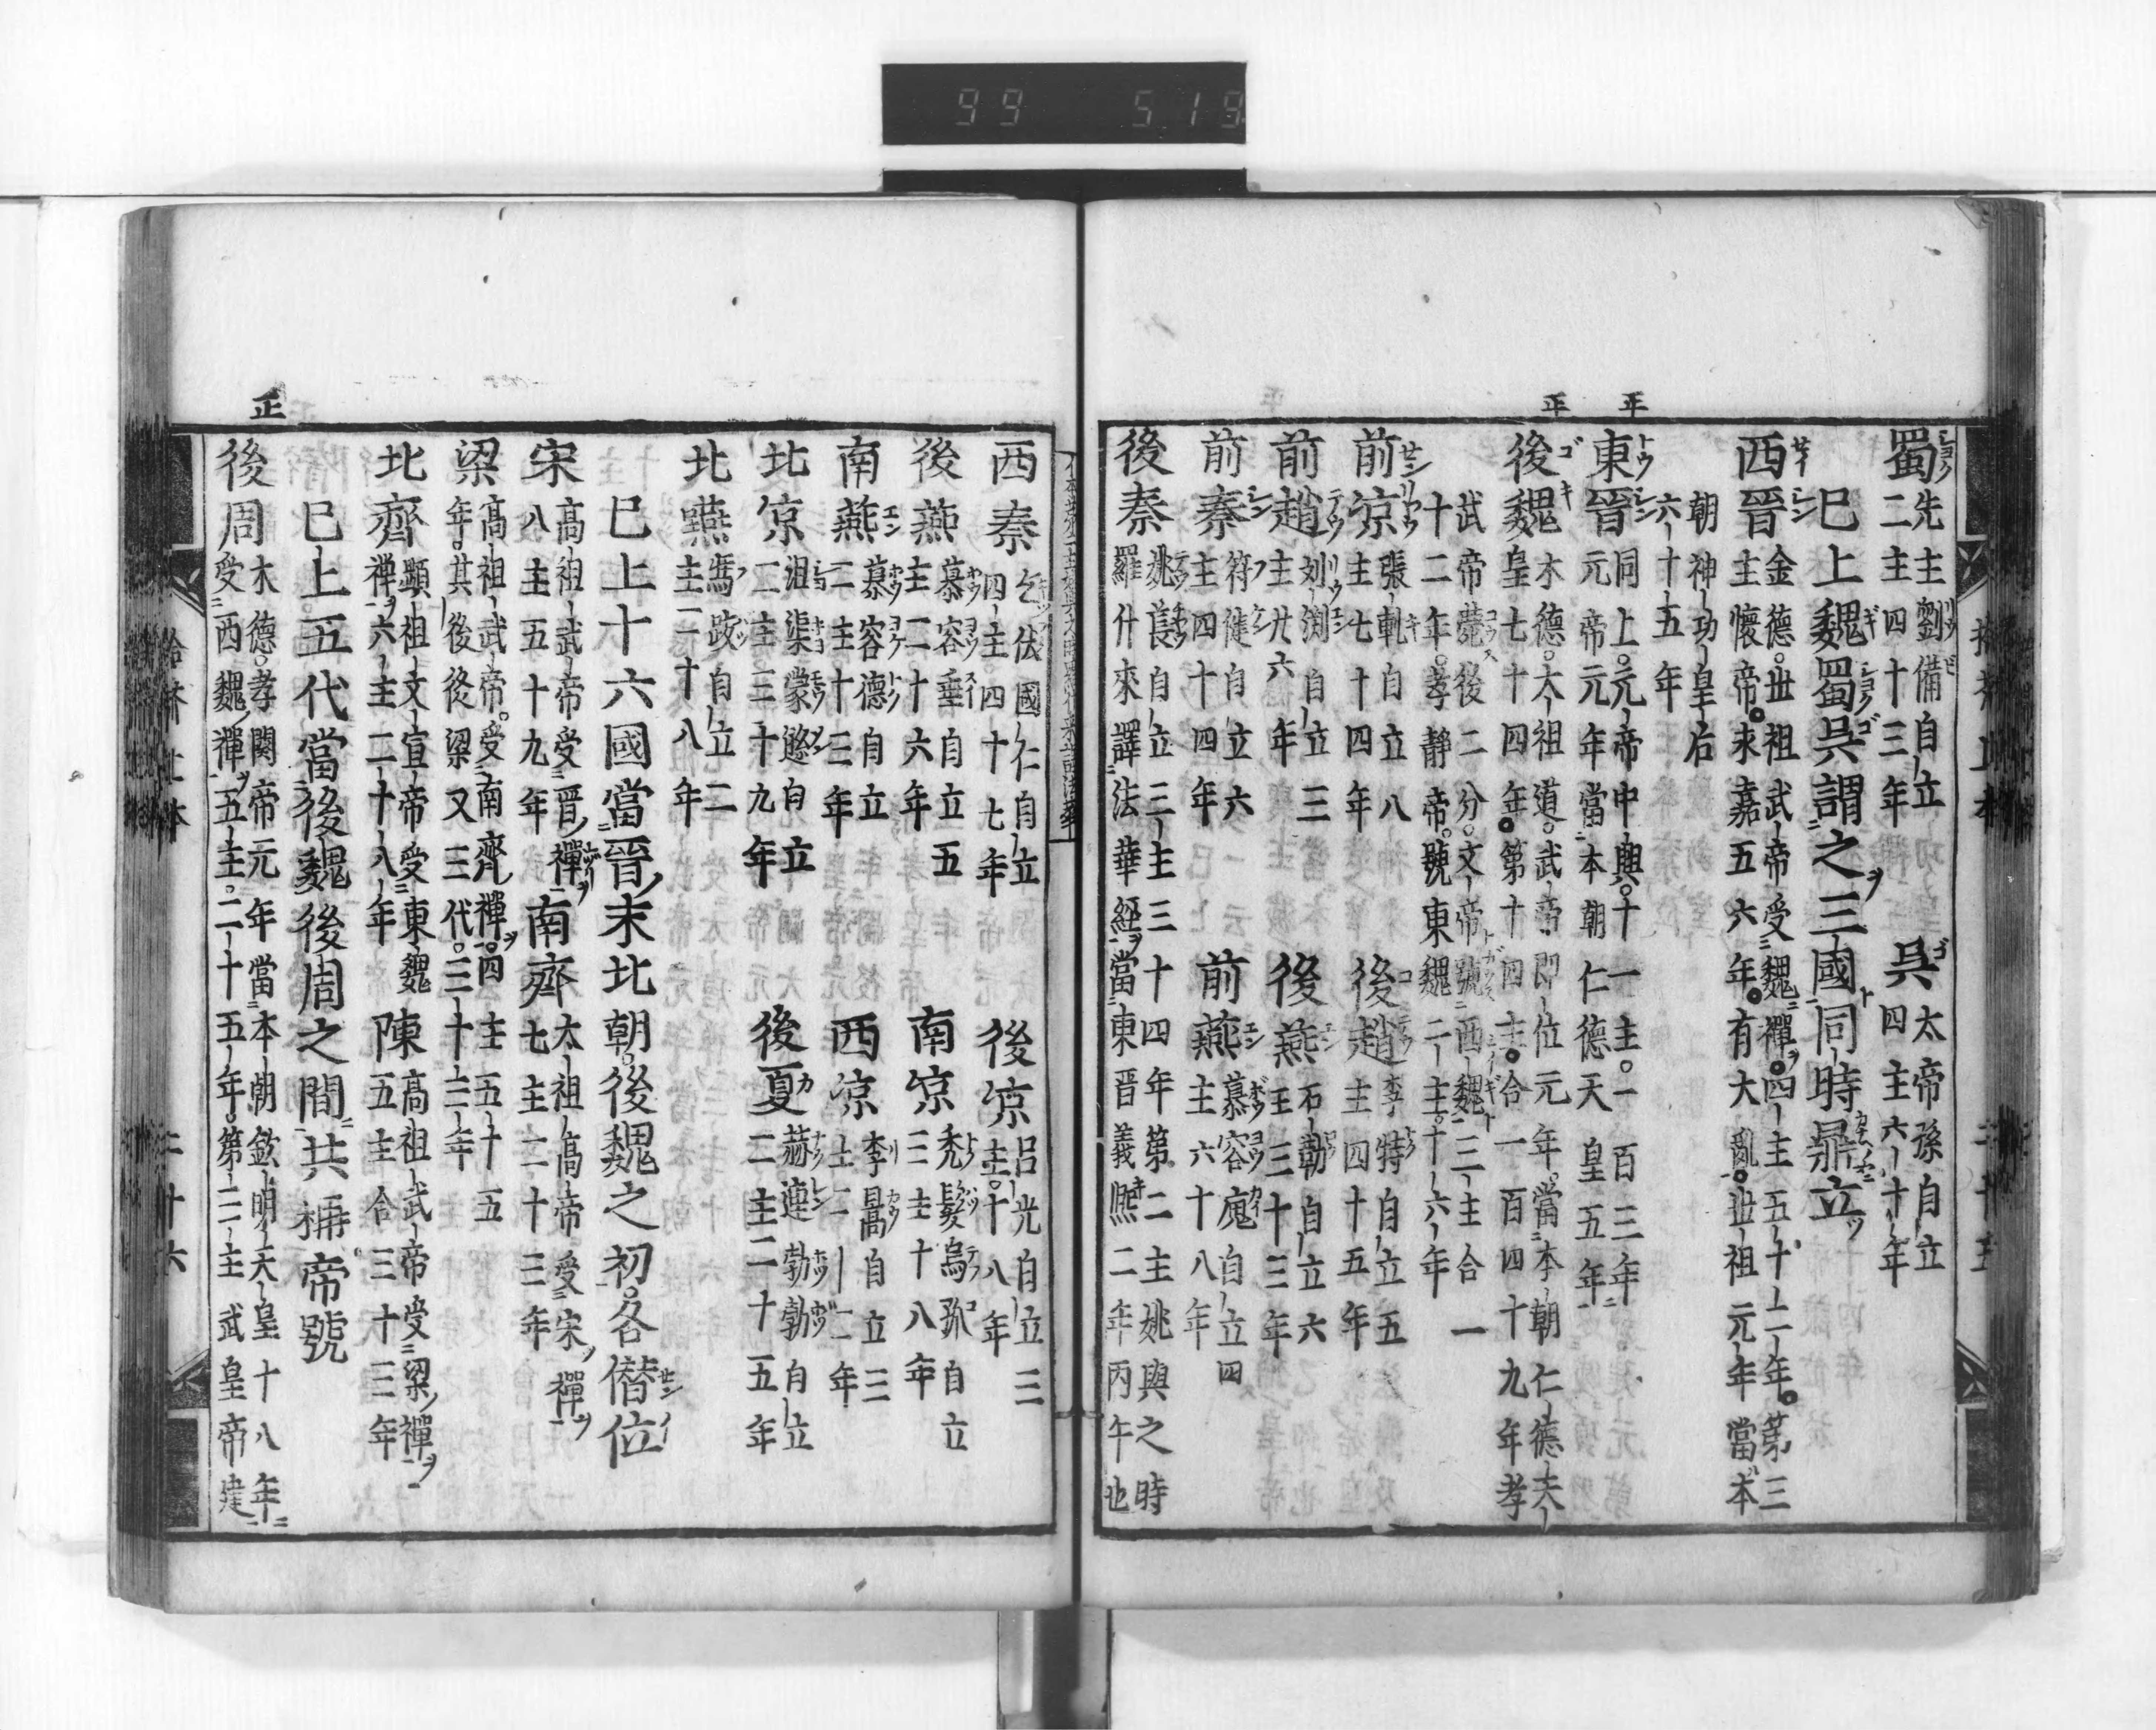 99 519
蜀先主劉備自立
二主四十三年
吳太帝孫自立
四主六十年
巳上魏蜀吳謂之三國同時鼎立
西晉金德。世祖武帝受魏禪。四主五十二年。第三
主懷帝。末嘉五六年。有大亂。世祖元年當本
朝神功皇后
六十五年
東晉同上。元帝中興。十一主。一百三年
元帝元年當本朝仁德天皇五年
後魏木德。太祖道武帝即位元年。當本朝仁德天
皇七十四年。第十四主。合一百四十九年孝
武帝薨後二分。文帝號西魏三主合一
十二年。孝靜帝。號東魏二主。十六年
前涼張軌自立八
主七十四年
後趙李特自立五
主四十五年
前趙刘渕自立三
主廿六年
後燕石勒自立六
主三十三年
前秦符健自立六
主四十四年
前燕慕容廆自立四
主六十八年
後秦姚萇自立三主三十四年第二主姚興之時
羅什來譯法華經當東晉義熈二年丙午也
西秦乞伏國仁自立
四主四十七年
後涼呂光自立三
主。十八年
後燕慕容垂自立五
主二十六年
南涼禿髮烏孤自立
三主十八年
南燕慕容德自立
二主十三年
西涼李暠自立三
主二十二年
北涼沮渠蒙遜自立
二主三十九年
後夏赫連勃勃自立
二主二十五年
北燕馮政自立二
主二十八年
巳上十六國當晉末北朝。後魏之初。各僭位
宋高祖武帝受晉禪
八主五十九年
南齊太祖高帝受宋禪
七主二十三年
梁高祖武帝。受南齊禪。四主五十五
年。其後後梁又三代。三十三年
北齊顯祖文宣帝受東魏
禅六主二十八年
陳高祖武帝受梁禪
五主合三十三年
巳上五代當後魏後周之間共稱帝號
後周木德。孝閔帝元年當本朝欽明天皇十八年
受西魏禪五主。二十五年。第二主武皇帝建
二十六
正